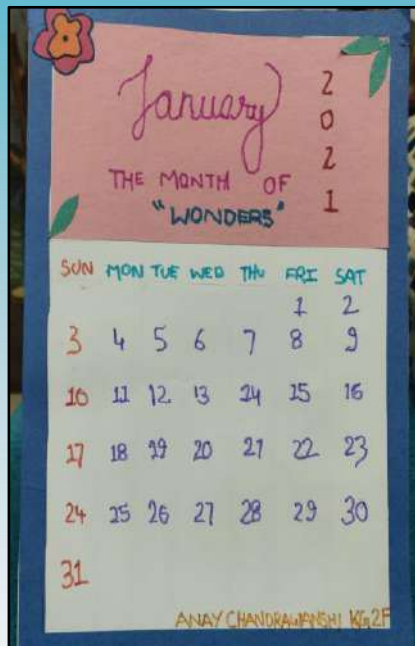 January
2021
THE MONTH OF
"WONDERS"
SUN MON TUE WED THU FRI SAT
1 2
3 4 5 6 7 8 9
10 11 12 13 14 15 16
17 18 19 20 21 22 23
24 25 26 27 28 29 30
31
ANAY CHANDRAWANSHI KG2F